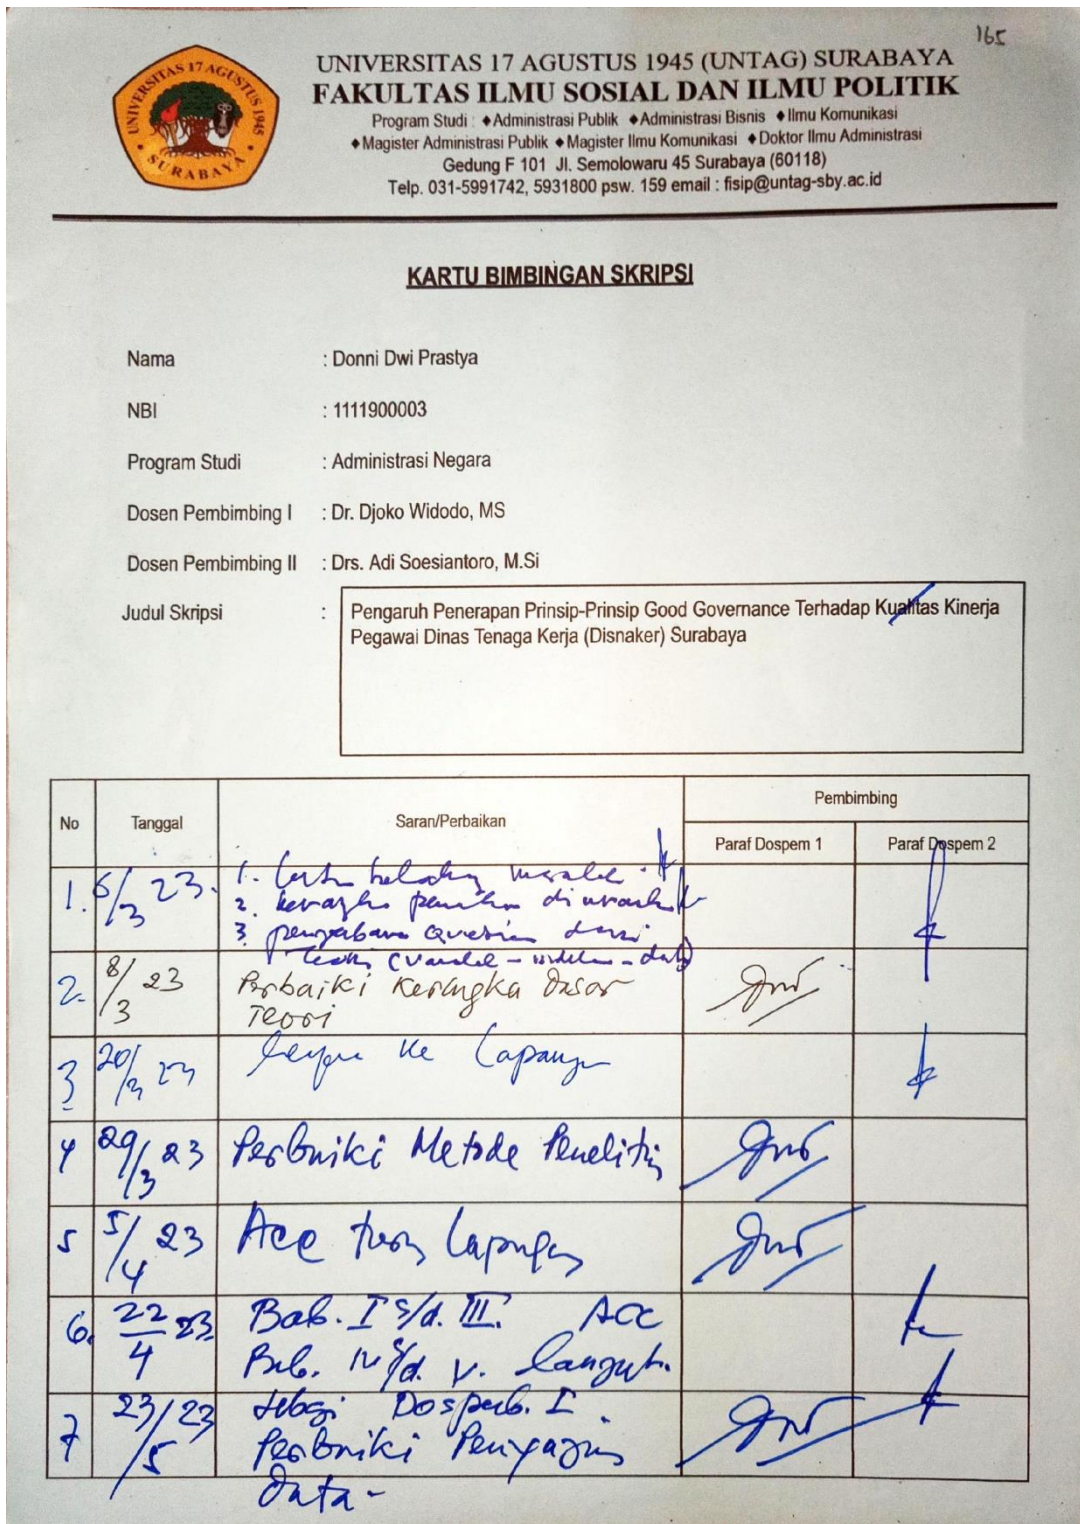 165
UNIVERSITAS 17 AGUSTUS 1945 SURABAYA
UNIVERSITAS 17 AGUSTUS 1945 (UNTAG) SURABAYA
FAKULTAS ILMU SOSIAL DAN ILMU POLITIK
Program Studi : ◆Administrasi Publik ◆Administrasi Bisnis ◆Ilmu Komunikasi
◆Magister Administrasi Publik ◆Magister Ilmu Komunikasi ◆Doktor Ilmu Administrasi
Gedung F 101 Jl. Semolowaru 45 Surabaya (60118)
Telp. 031-5991742, 5931800 psw. 159 email : fisip@untag-sby.ac.id
KARTU BIMBINGAN SKRIPSI
Nama : Donni Dwi Prastya
NBI : 1111900003
Program Studi : Administrasi Negara
Dosen Pembimbing I : Dr. Djoko Widodo, MS
Dosen Pembimbing II : Drs. Adi Soesiantoro, M.Si
Judul Skripsi : Pengaruh Penerapan Prinsip-Prinsip Good Governance Terhadap Kualitas Kinerja
Pegawai Dinas Tenaga Kerja (Disnaker) Surabaya
No Tanggal Saran/Perbaikan Pembimbing
Paraf Dospem 1 Paraf Dospem 2
1. 6/3 23. 1.
2.
3.
2. 8/3 23 Perbaiki Kerangka Dasar
Teori
3 20/3 23 ke Lapangan
4 29/3 23 Perbaiki Metode Penelitian
5 5/4 23 Acc turun Lapangan
6. 22/4 23 Bab. I s/d. III. Acc
Bab. IV s/d. V. Lanjut.
7 23/5 23 Dospemb. I.
Perbaiki Penyajian
Data-